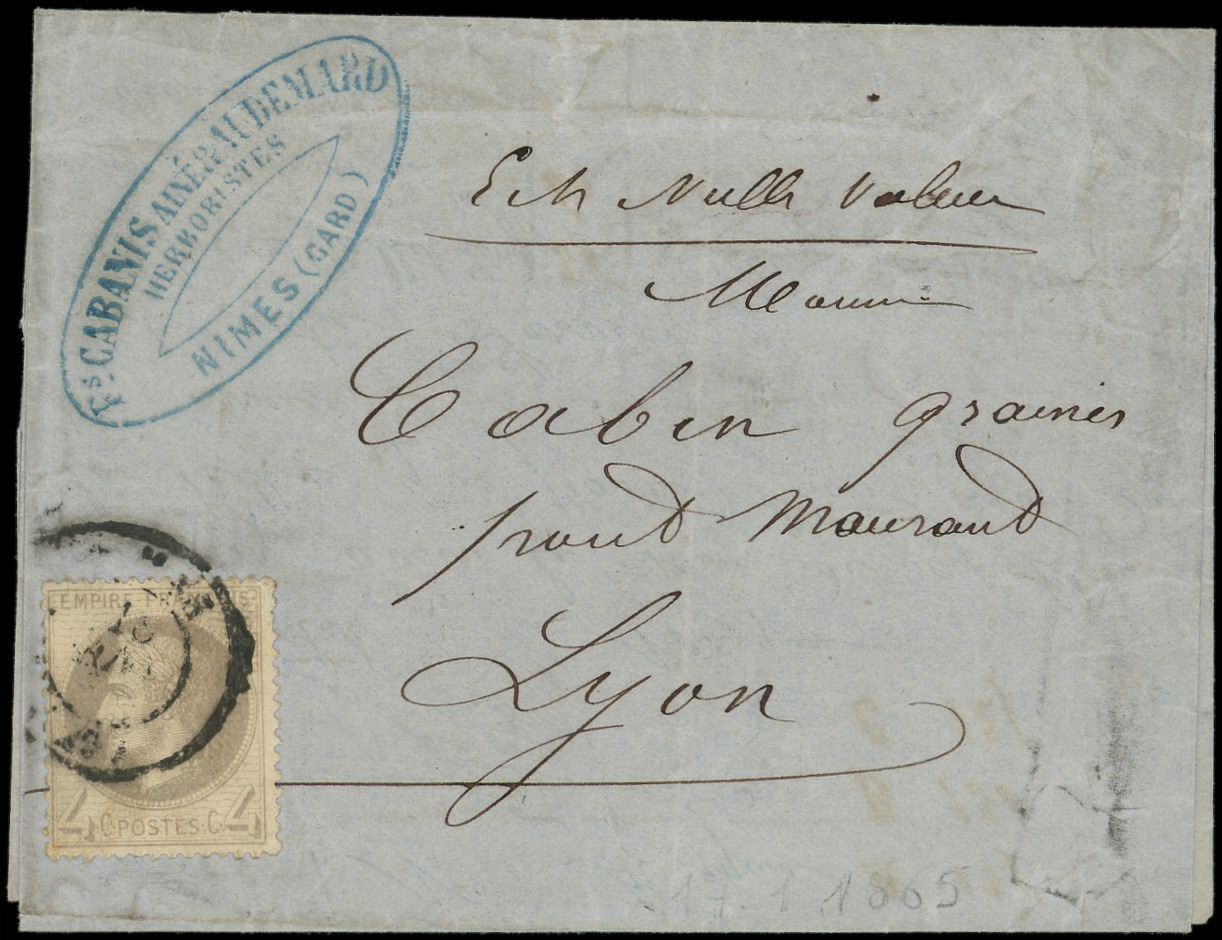 Fs. CABANIS AINÉ & AUDEMARD
HERBORISTES
NIMES (GARD)
Ech Nulle Valeur
Cabin grainier
pont Mourand
Lyon
EMPIRE FRANÇAIS
4 C. POSTES C. 4
17.1.1865